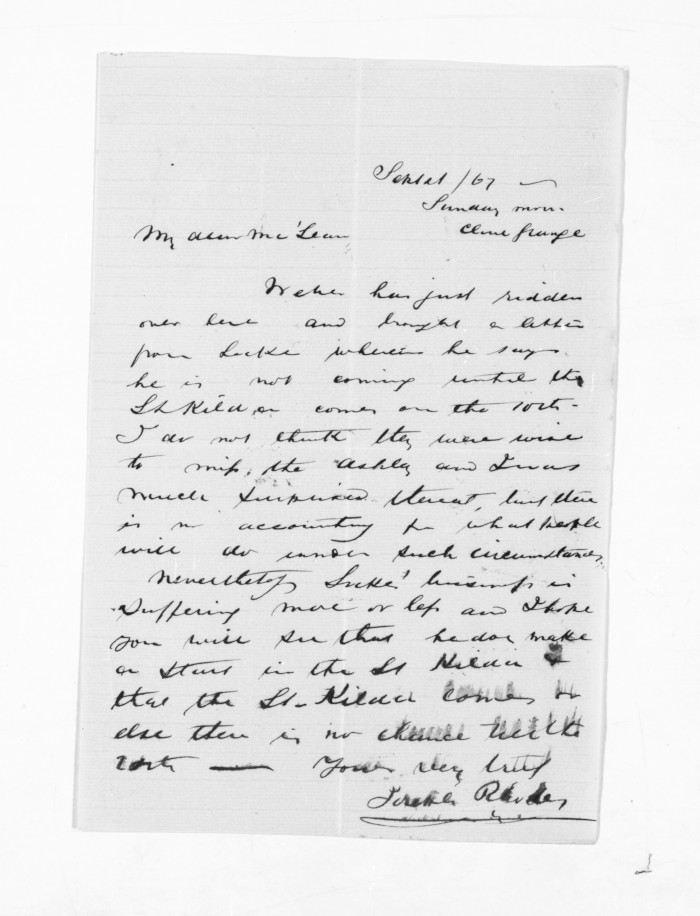 Sept 1st /67
Sunday morn.
Clive Grange
My dear McLean
has just ridden
over here and brought a letter
from Locke wherein he says
he is not coming until the
St Kilda comes on the 10th -
I do not think they were wise
to miss the Ashley and I was
much surprised thereat, but there
is no accounting for what people
will do under such circumstances.
Nevertheless Locke's business is
suffering more or less and I hope
you will see that he does make
a start in the St Kilda &
that the St. Kilda comes or
else there is no chance till the
Yours very truly
Joseph Rhodes